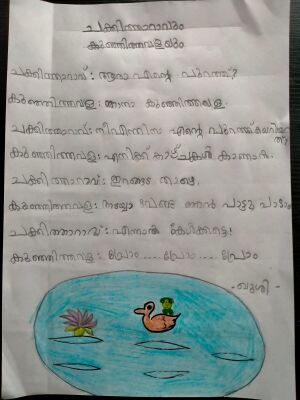 ചക്കിത്താറാവും
കുഞ്ഞിത്തവളയും
ചക്കിത്താറാവ് : ആരാ എന്റെ പുറത്ത്?
കുഞ്ഞിത്തവള : ഞാനാ കുഞ്ഞിത്തവള.
ചക്കിത്താറാവ് : നീ എന്തിനാ എന്റെ പുറത്ത് കയറിയത്?
കുഞ്ഞിത്തവള : എനിക്ക് കാഴ്ചകൾ കാണാൻ.
ചക്കിത്താറാവ് : ഇറങ്ങടാ താഴെ.
കുഞ്ഞിത്തവള : അയ്യോ വേണ്ട ഞാൻ പാട്ടു പാടാം
ചക്കിത്താറാവ് : എന്നാൽ കേൾക്കട്ടെ!
കുഞ്ഞിത്തവള : പ്രോം ..... പ്രോം .... പ്രോം
- ഖുശി -